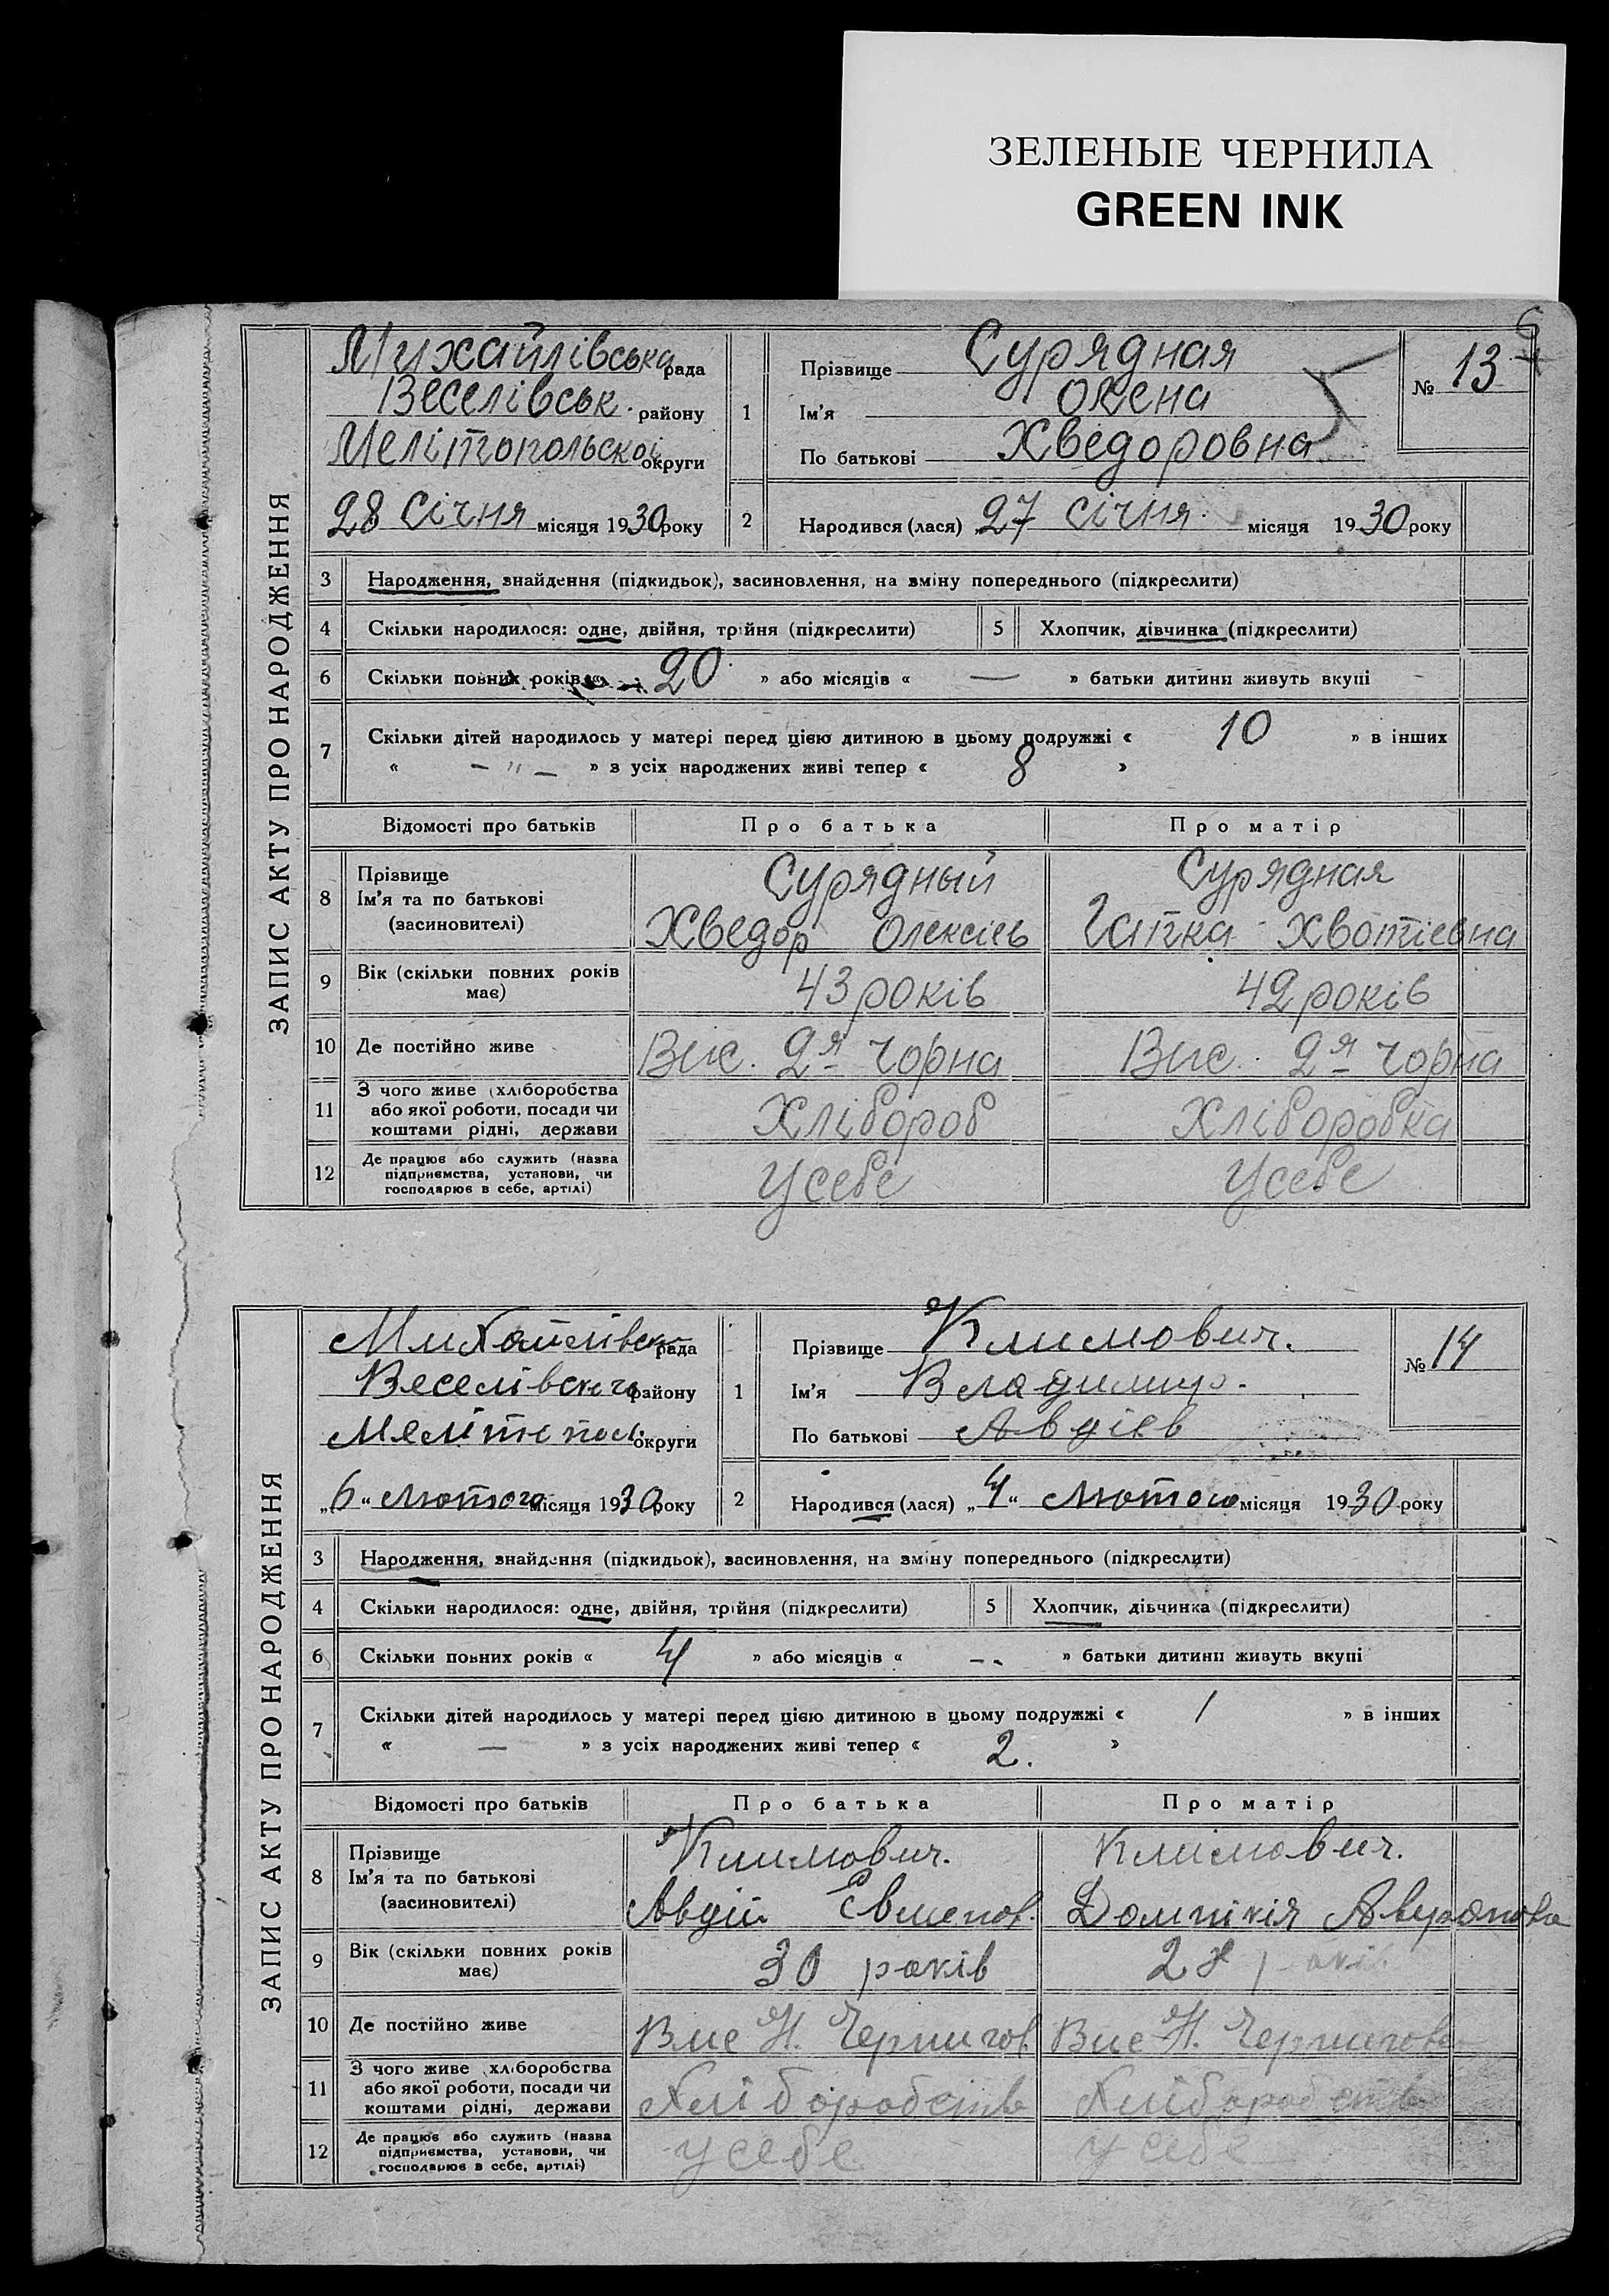 ЗЕЛЕНЫЕ ЧЕРНИЛА
GREEN INK
6
ЗАПИС АКТУ ПРО НАРОДЖЕННЯ
Михайлівська рада
Веселівськ. району
Мелітопольскоі округи
28 Січня місяця 1930 року
1
Прізвище Сурядная
Ім'я Олена
По батькові Хведоровна
№ 13
2
Народився (лася) 27 січня місяця 1930 року
3 Народження, знайдення (підкидьок), засиновлення, на зміну попереднього (підкреслити)
4 Скільки народилося: одне, двійня, трійня (підкреслити) 5 Хлопчик, дівчинка (підкреслити)
6 Скільки повних років « 20 » або місяців « — » батьки дитини живуть вкупі
7 Скільки дітей народилось у матері перед цією дитиною в цьому подружжі « 10 » в інших
« — " — » з усіх народжених живі тепер « 8 »
Відомості про батьків Про батька Про матір
8 Прізвище Ім'я та по батькові (засновителі)
Сурядный Сурядная
Хведор Олексієв Гапка Хвотіевна
9 Вік (скільки повних років має) 43 років 42 років
10 Де постійно живе Вис. 2я чорна Вис. 2я чорна
11 З чого живе (хліборобства або якої роботи, посади чи коштами рідні, держави Хлібороб Хліборобка
12 Де працює або служить (назва підприємства, установи, чи господарює в себе, артілі) У себе У себе
ЗАПИС АКТУ ПРО НАРОДЖЕННЯ
Михайлівськ рада
Веселівского району
Мелітопол. округи
„6“ Лютого місяця 1930 року
1
Прізвище Климович.
Ім'я Владимир.
По батькові Авдієв
№ 14
2
Народився (лася) „4“ Лютого місяця 1930 року
3 Народження, знайдення (підкидьок), засиновлення, на зміну попереднього (підкреслити)
4 Скільки народилося: одне, двійня, трійня (підкреслити) 5 Хлопчик, дівчинка (підкреслити)
6 Скільки повних років « 4 » або місяців « -- » батьки дитини живуть вкупі
7 Скільки дітей народилось у матері перед цією дитиною в цьому подружжі « 1 » в інших
« — » з усіх народжених живі тепер « 2. »
Відомості про батьків Про батька Про матір
8 Прізвище Ім'я та по батькові (засновителі)
Климович. Климович.
Авдій Євменов. Домнікія
9 Вік (скільки повних років має) 30 років років
10 Де постійно живе Вис Н. Чернигов. Вис Н. Чернигов
11 З чого живе хліборобства або якої роботи, посади чи коштами рідні, держави Хліборобств Хліборобств
12 Де працює або служить (назва підприємства, установи, чи господарює в себе, артілі) у себе у себе